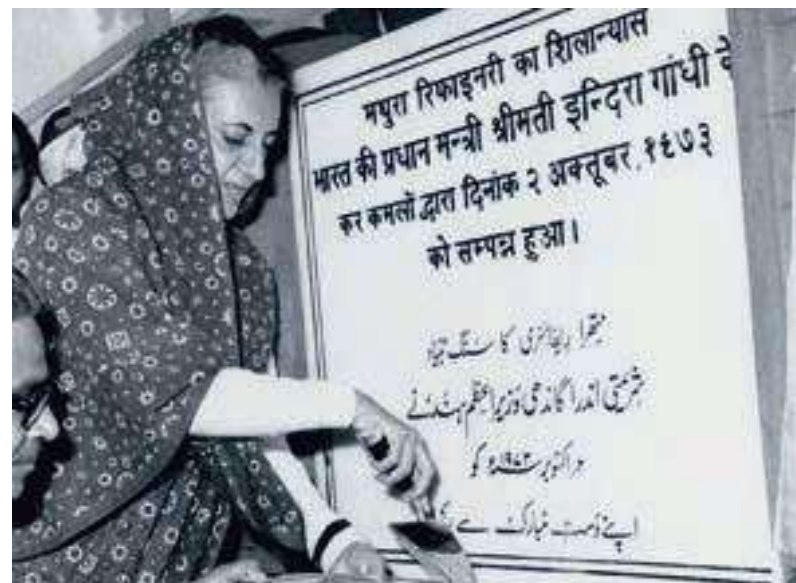 मथुरा रिफाइनरी का शिलान्यास
भारत की प्रधान मन्त्री श्रीमती इन्दिरा गांधी के
कर कमलों द्वारा दिनांक २ अक्तूबर, १९७३
को सम्पन्न हुआ।
متھرا ریفائنری کا سنگ بنیاد
شریمتی اندرا گاندھی وزیراعظم ہند نے
۲ اکتوبر ۱۹۷۳ء کو
اپنے دست مبارک سے